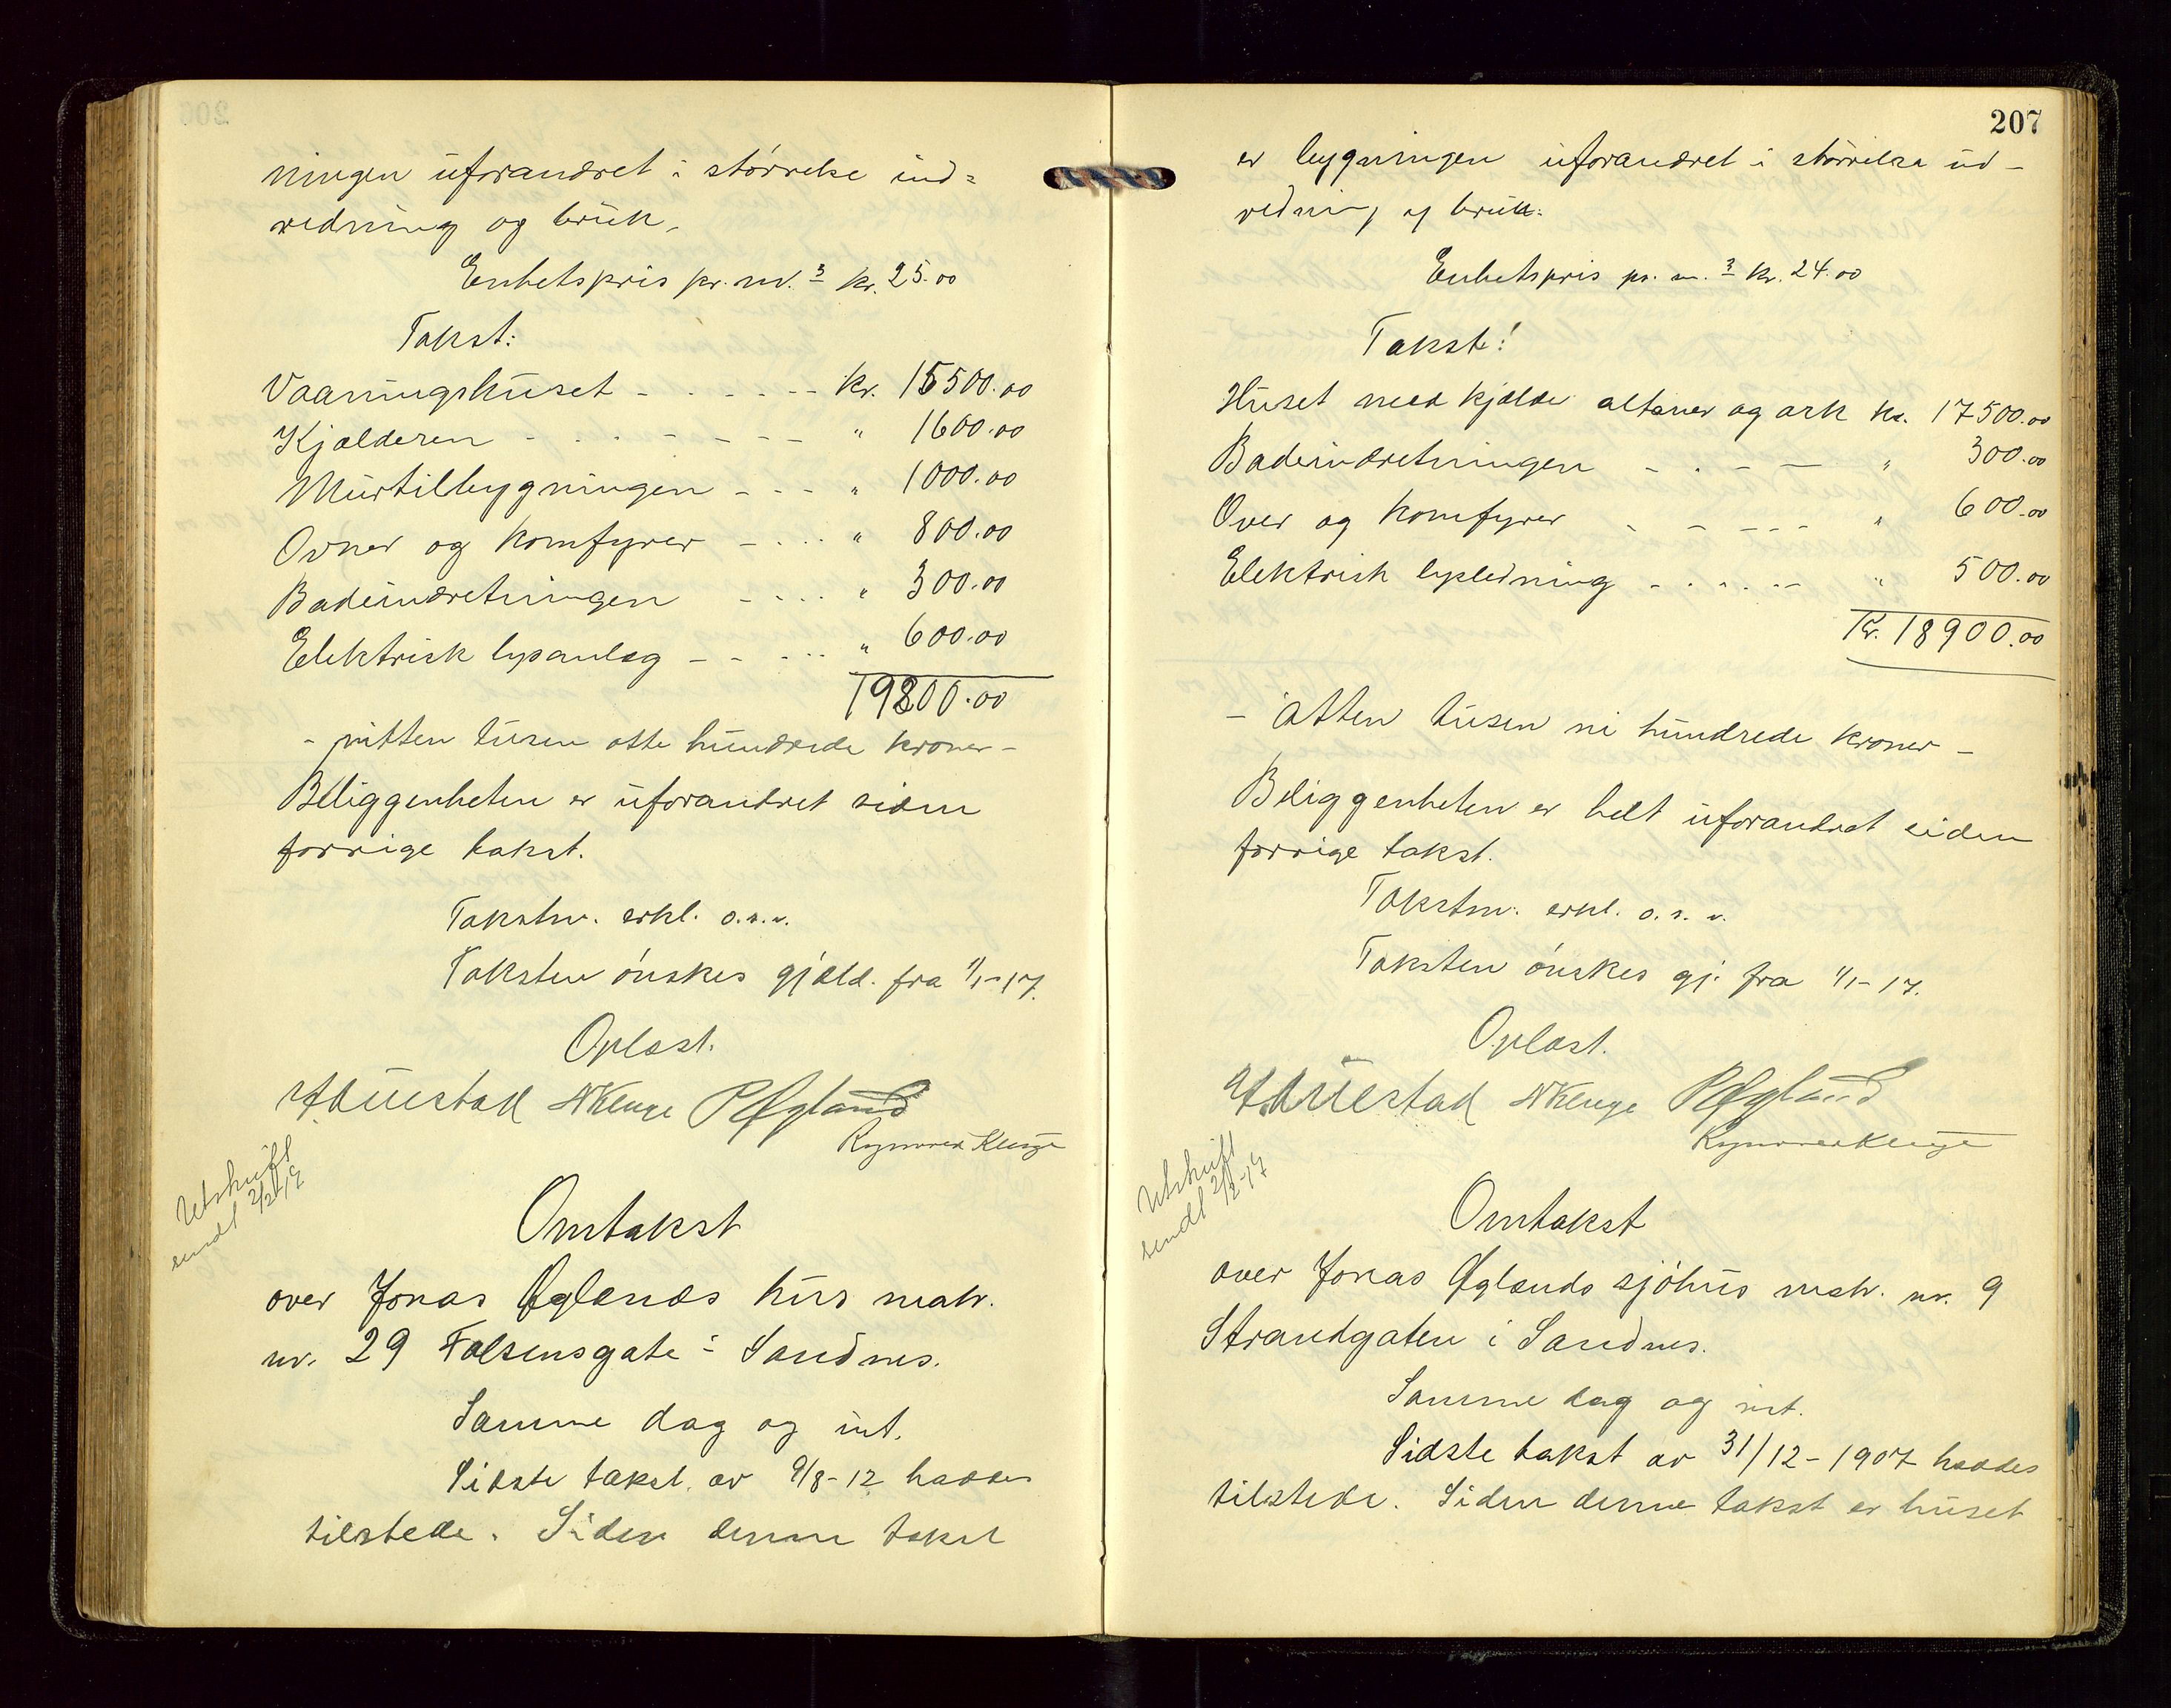 ningen uforandret i størrelse ind=
redning og bruk.
Enhetspris pr. m.3 kr. 25.00
Takst:
Vaaningshuset - - - - - - kr. 15500.00
Kjælderen - - - - - - - " 1600.00
Murtilbygningen - - - " 1000.00
Ovner og komfyrer - - - - " 800.00
Badeindretningen - - - - " 300.00
Elektrisk lysanlæg - - - - - " 600.00
19800.00
- nitten tusen otte hundrede kroner -
Beliggenheten er uforandret siden
forrige takst.
Takstm. erkl. o.s.v.
Taksten ønskes gjæld. fra 1/1-17.
Oplæst.
Huestad N Kluge P Øgland
Rasmus Kluge
Utskrift
sendt 2/2-17
Omtakst
over Jonas Øglænds hus matr.
nr. 29 Falsensgate i Sandnes.
Samme dag og int.
Sidste takst av 9/8-12 haddes
tilstede. Siden denne takst
207
er bygningen uforandret i størrelse ind-
redning og bruk.
Enhetspris pr. m.3 kr. 24.00
Takst!
Huset med kjælder altaner og ark kr. 17500.00
Badeindretningen - - - - " 300.00
Over og komfyrer - - - - - " 600.00
Elektrisk lysledning - - - - - - " 500.00
Kr. 18900.00
- Atten tusen ni hundrede kroner -
Beliggenheten er helt uforandret siden
forrige takst.
Takstm. erkl. o. s. v.
Taksten ønskes gj. fra 1/1-17.
Oplæst.
Huestad N Kluge P Øgland
Rasmus Kluge
Utskrift
sendt 2/2-17
Omtakst
over Jonas Øglænds sjøhus matr. nr. 9
Strandgaten i Sandnes.
Samme dag og int.
Sidste takst av 31/12-1907 haddes
tilstede. Siden denne takst er huset